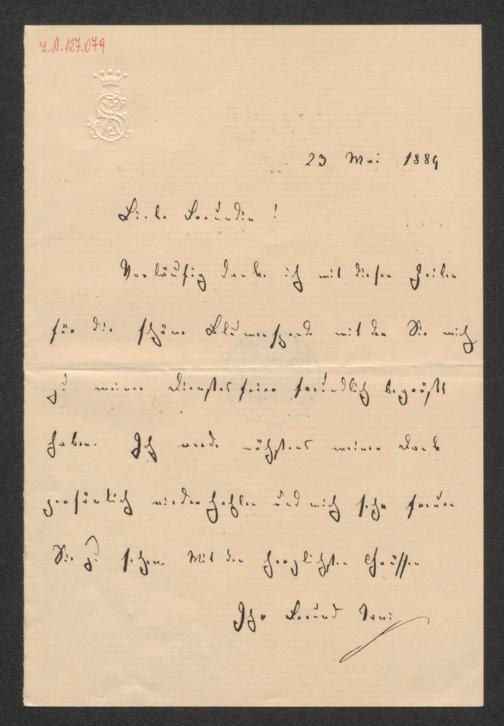 J.N. 127.079
23 Mai 1889
Liebe Freundin!
Vorläufig danke ich mit diesen Zeilen
für die schöne Blumenspende mit der Sie mich
zu meiner Dienstesfeier freundlich begrüßt
haben. Ich werde nächstens meinen Dank
persönlich wiederhohlen und mich sehr freuen
Sie zu sehen. Mit den herzlichsten Grüssen
Ihr Freund